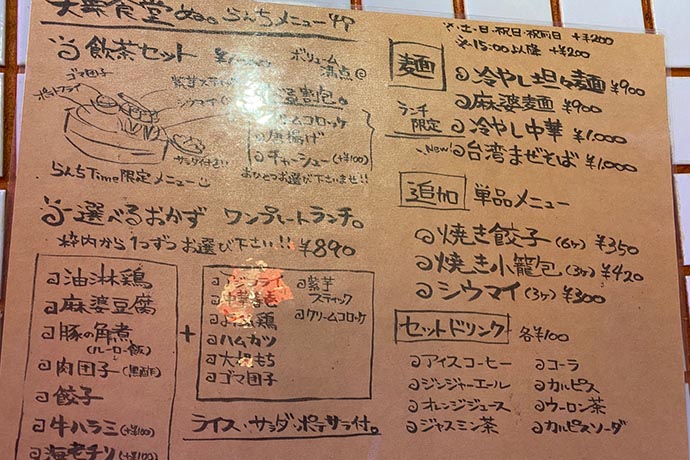 食堂 らんちメニュー
※土・日・祝日・祝前日 +¥200
※15:00以降 +¥200
飲茶セット
ボリューム
満点
ゴマ団子
ポテトフライ
紫芋スティック
シウマイ
サラダ付き
割包。
クリームコロッケ
唐揚げ
チャーシュー(+¥100)
おひとつお選び下さいませ!!
らんちTime限定メニュー
選べるおかず ワンプレートランチ。
枠内から1つずつお選び下さい!! ¥890
油淋鶏
麻婆豆腐
豚の角煮
(ルーロー飯)
肉団子
餃子
牛ハラミ(+¥100)
海老チリ(+¥100)
+
ハムカツ
大根もち
ゴマ団子
紫芋
スティック
クリームコロッケ
ライス・サラダ・ポテサラ付。
麺
冷やし坦々麺 ¥900
麻婆麺 ¥900
ランチ
限定
冷やし中華 ¥1,000
New!
台湾まぜそば ¥1,000
追加 単品メニュー
焼き餃子(6ヶ) ¥350
焼き小籠包(3ヶ) ¥420
シウマイ(3ヶ) ¥300
セットドリンク 各¥100
アイスコーヒー
ジンジャーエール
オレンジジュース
ジャスミン茶
コーラ
カルピス
ウーロン茶
カルピスソーダ